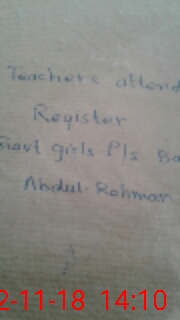 Teachers attend
Register
Govt girls P/s Ba
Abdul-Rehman
2-11-18 14:10